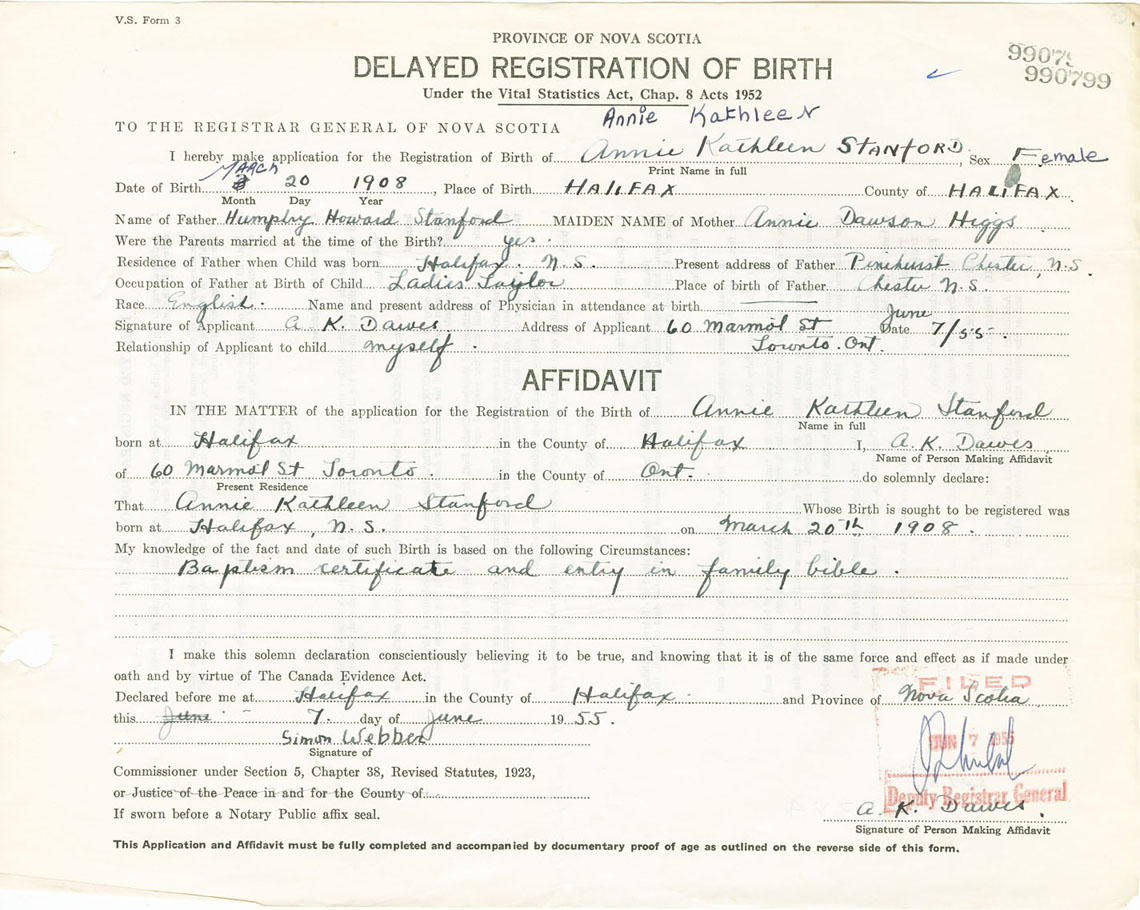 V.S. Form 3
PROVINCE OF NOVA SCOTIA
DELAYED REGISTRATION OF BIRTH
Under the Vital Statistics Act, Chap. 8 Acts 1952
9907
990799
Annie Kathleen
TO THE REGISTRAR GENERAL OF NOVA SCOTIA
I hereby make application for the Registration of Birth of Annie Kathleen STANFORD, Sex Female
Print Name in full
Date of Birth MARCH 20 1908, Place of Birth HALIFAX County of HALIFAX
Month Day Year
Name of Father Humphry Howard Stanford MAIDEN NAME of Mother Annie Dawson Higgs
Were the Parents married at the time of the Birth? yes.
Residence of Father when Child was born Halifax. N.S. Present address of Father Pinehurst Chester, N.S.
Occupation of Father at Birth of Child Ladies Taylor Place of birth of Father Chester N.S.
Race English. Name and present address of Physician in attendance at birth
Signature of Applicant A K. Dawes Address of Applicant 60 Marmot St Date June 7/55.
Relationship of Applicant to child myself. Toronto. Ont.
AFFIDAVIT
IN THE MATTER of the application for the Registration of the Birth of Annie Kathleen Stanford
Name in full
born at Halifax in the County of Halifax I, A. K. Dawes
Name of Person Making Affidavit
of 60 Marmot St Toronto. in the County of Ont. do solemnly declare:
Present Residence
That Annie Kathleen Stanford Whose Birth is sought to be registered was
born at Halifax, N.S. on March 20th 1908.
My knowledge of the fact and date of such Birth is based on the following Circumstances:
Baptism certificate and entry in family bible.
I make this solemn declaration conscientiously believing it to be true, and knowing that it is of the same force and effect as if made under
oath and by virtue of The Canada Evidence Act.
Declared before me at Halifax in the County of Halifax. and Province of Nova Scotia
this June 7. day of June 1955.
Simon Webber
Signature of
Commissioner under Section 5, Chapter 38, Revised Statutes, 1923,
or Justice of the Peace in and for the County of
If sworn before a Notary Public affix seal.
FILED
JUN 7 1955
Deputy Registrar General
A. K. Dawes.
Signature of Person Making Affidavit
This Application and Affidavit must be fully completed and accompanied by documentary proof of age as outlined on the reverse side of this form.